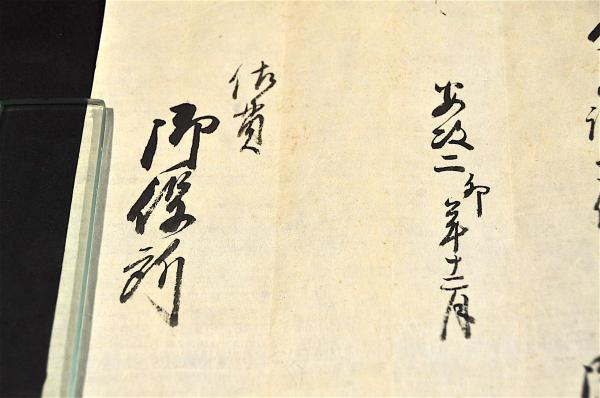 安政二卯年十二月
佐賀
御役所